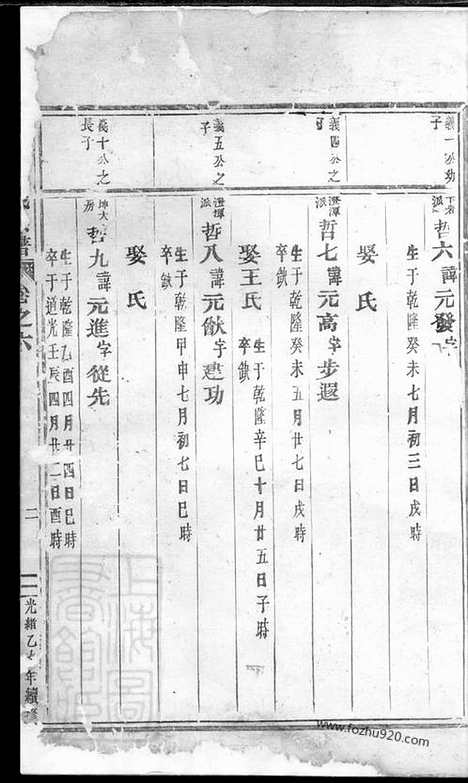 義一公幼
子
哲六諱元發字
生于乾隆癸未七月初三日戌時
娶氏
義四公之
子
澄潭
派
哲七諱元高字步遐
生于乾隆癸未五月廿七日戌時
卒缺
娶王氏
生于乾隆辛巳十月廿五日子時
卒缺
義五公之
子
澄潭
派
哲八諱元猷字建功
生于乾隆甲申七月初七日巳時
卒缺
娶氏
義十公之
長子
坤大
房
哲九諱元進字從先
生于乾隆乙酉四月廿四日巳時
卒于道光壬辰四月廿二日酉時
譜
卷之六
二
光緒乙
年續修
上海圖
書館藏
www.fozhu920.com